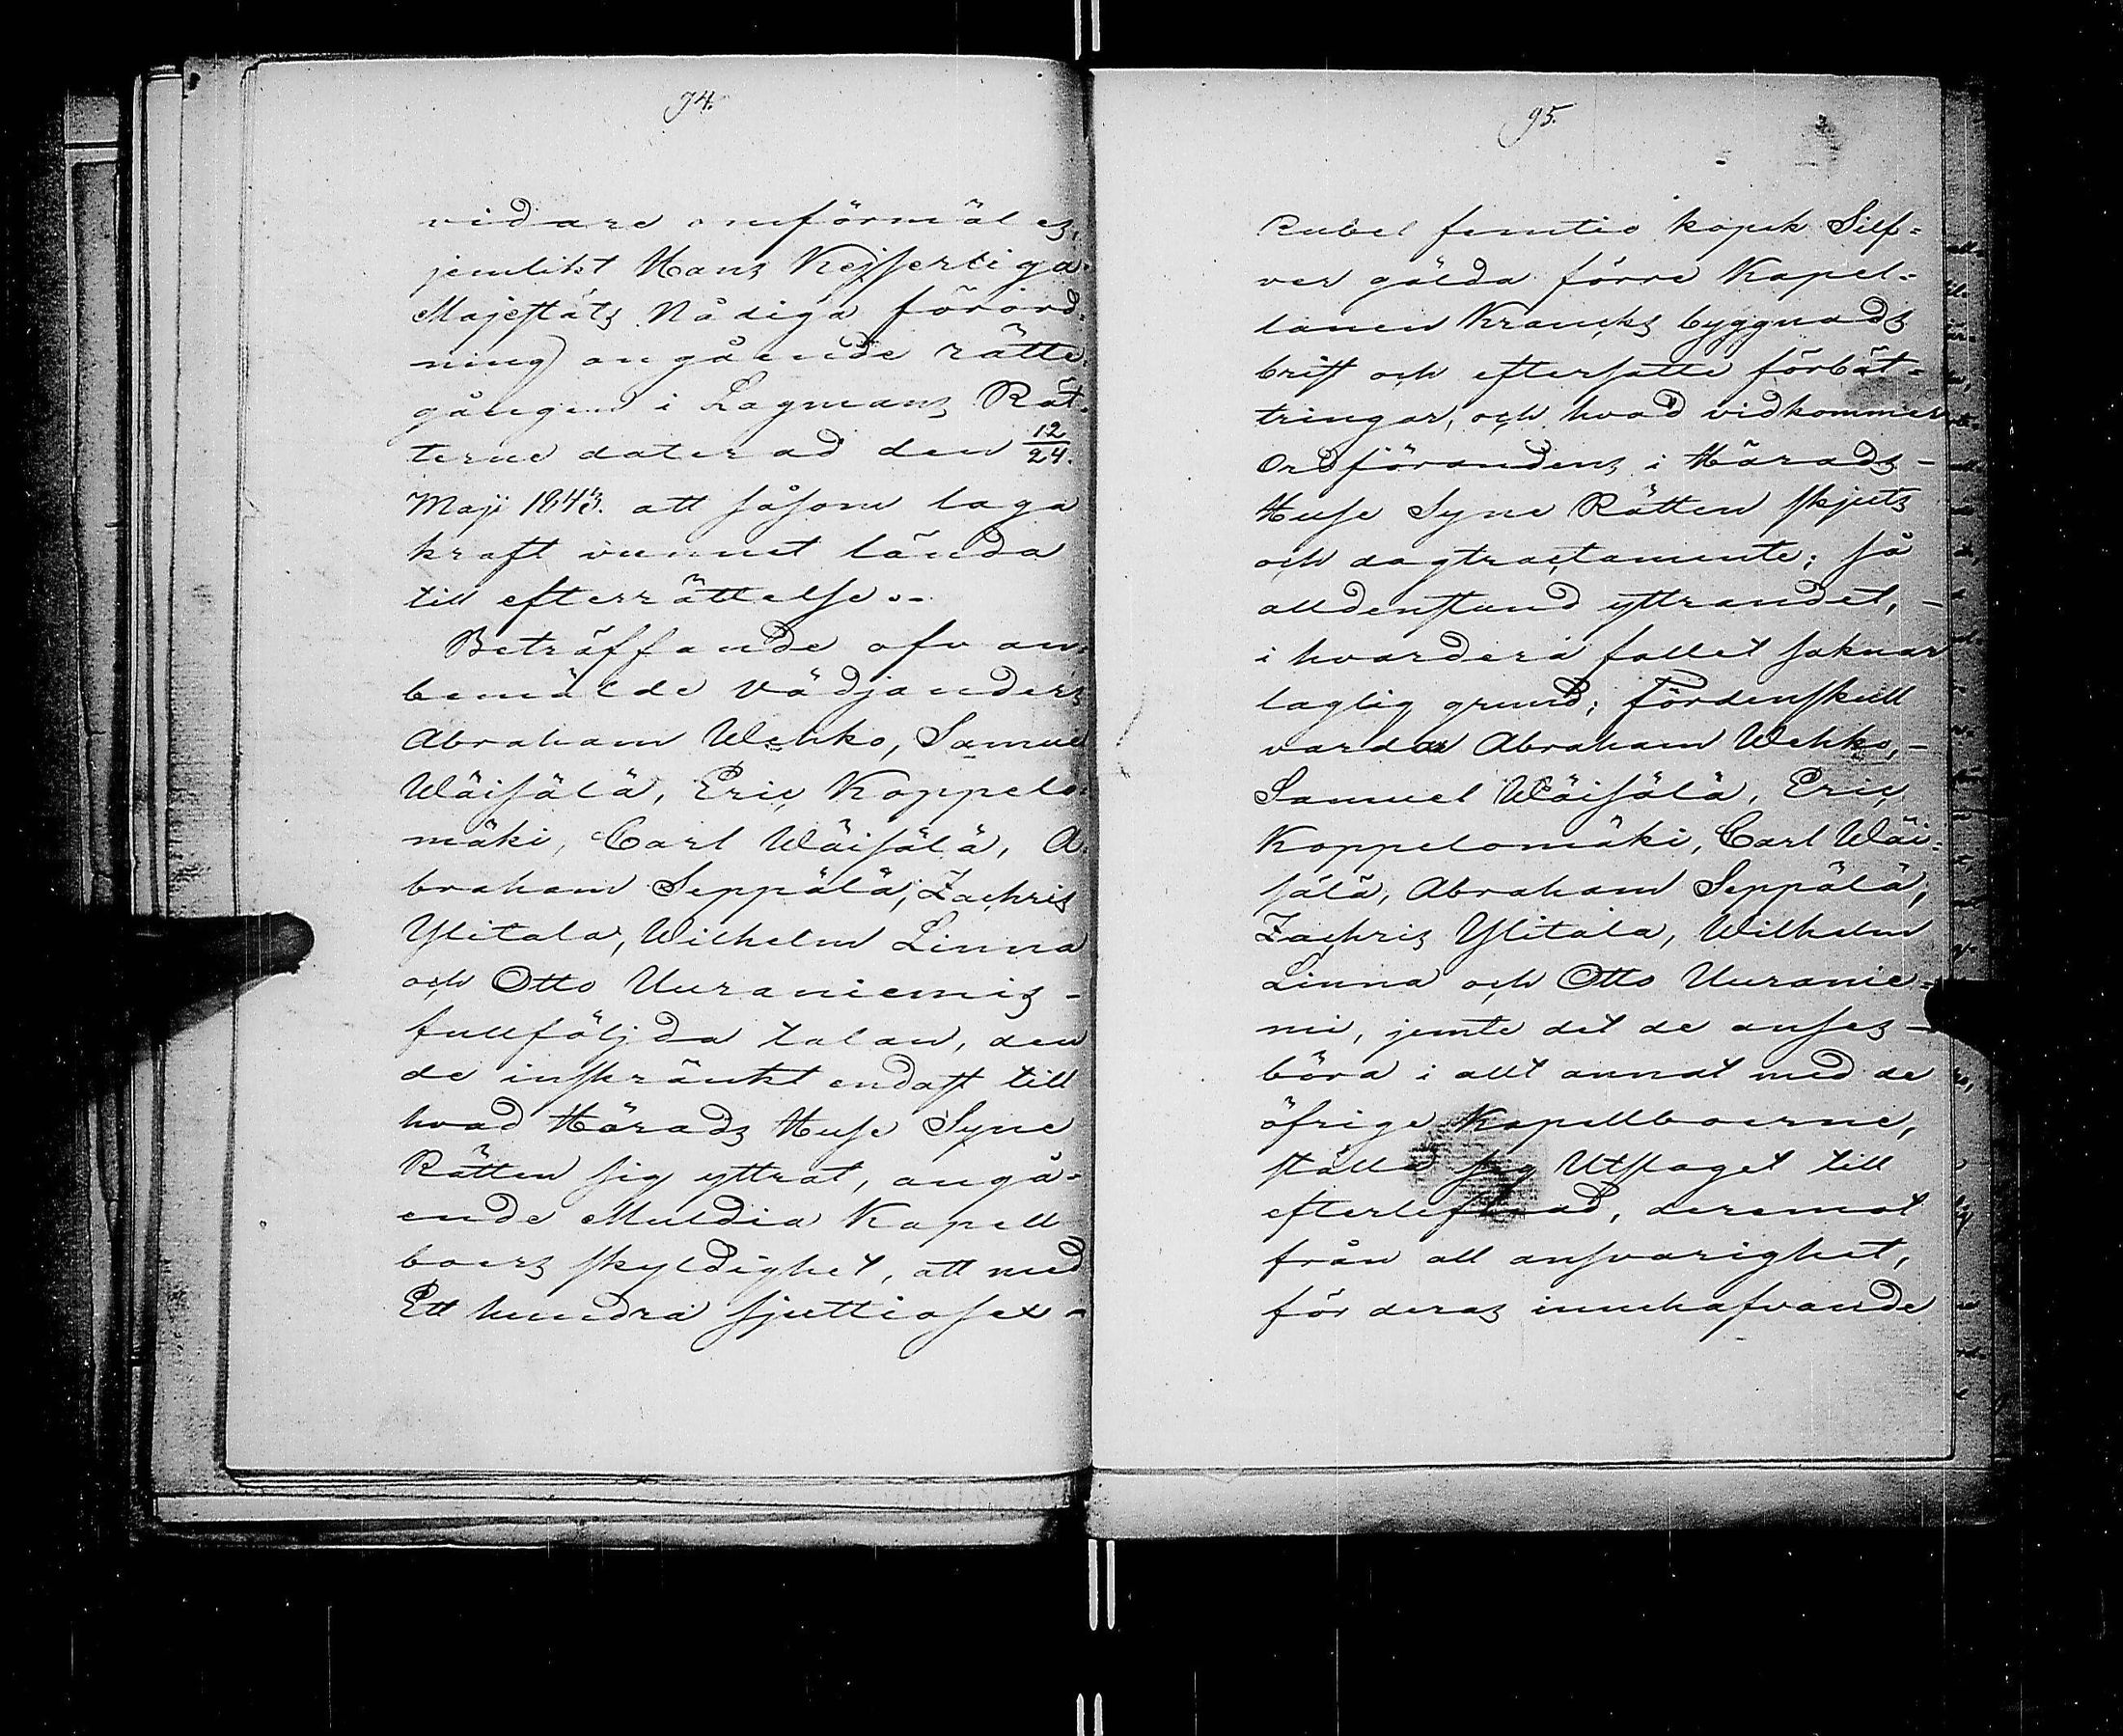 94.
vidare omförmäles,
jemlikt Hans Kejserliga
Majestäts Nådiga förord-
ning angående rätte-
gången i Lagmans Rät-
terne daterad den 12/24.
Maji 1843. att såsom laga
kraft vunnet lända
till efterrättelse.-
Beträffande ofvan-
bemälde Vädjanders
Abraham Wehko, Samuel
Wäisälä, Eric Koppelo-
mäki, Carl Wäisälä, A-
braham Seppälä, Zachris
Ylitalo, Wilhelm Linna
och Otto Uuraniemis -
fullföljda talan, den
de inskränkt endast till
hvad Härads Huse Syne
Rätten sig yttrat, angå-
ende Muldia Kapell
boers skyldighet, att med
Ett hundra sjuttiosex -
95.
Rubel femtio kopek Silf-
ver gälda förre Kapel-
lanen Krancks byggnads
brist och eftersatte förbät-
tringar, och hvad vidkommer
Ordförandens i Härads -
Huse Syne Rätten skjuts
och dagtractamente; så
alldenstund yttrandet, -
i hvardera fallet saknar
laglig grund; fördenskull
varda Abraham Wehko, -
Samuel Wäisälä, Eric
Koppelomäki, Carl Wäi-
sälä, Abraham Seppälä,
Zachris Ylitala, Wilhelm
Linna och Otto Uuranie-
mi, jemte det de anses -
böra i allt annat med de
öfrige Kapellboerne,
ställa sig Utslaget till
efterlefnad, deremot
från all ansvarighet,
för deras innehafvande